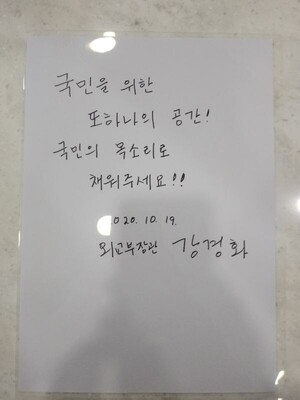 국민을 위한
또하나의 공간!
국민의 목소리로
채워주세요!!
020. 10. 19.
외교부장관 강경화